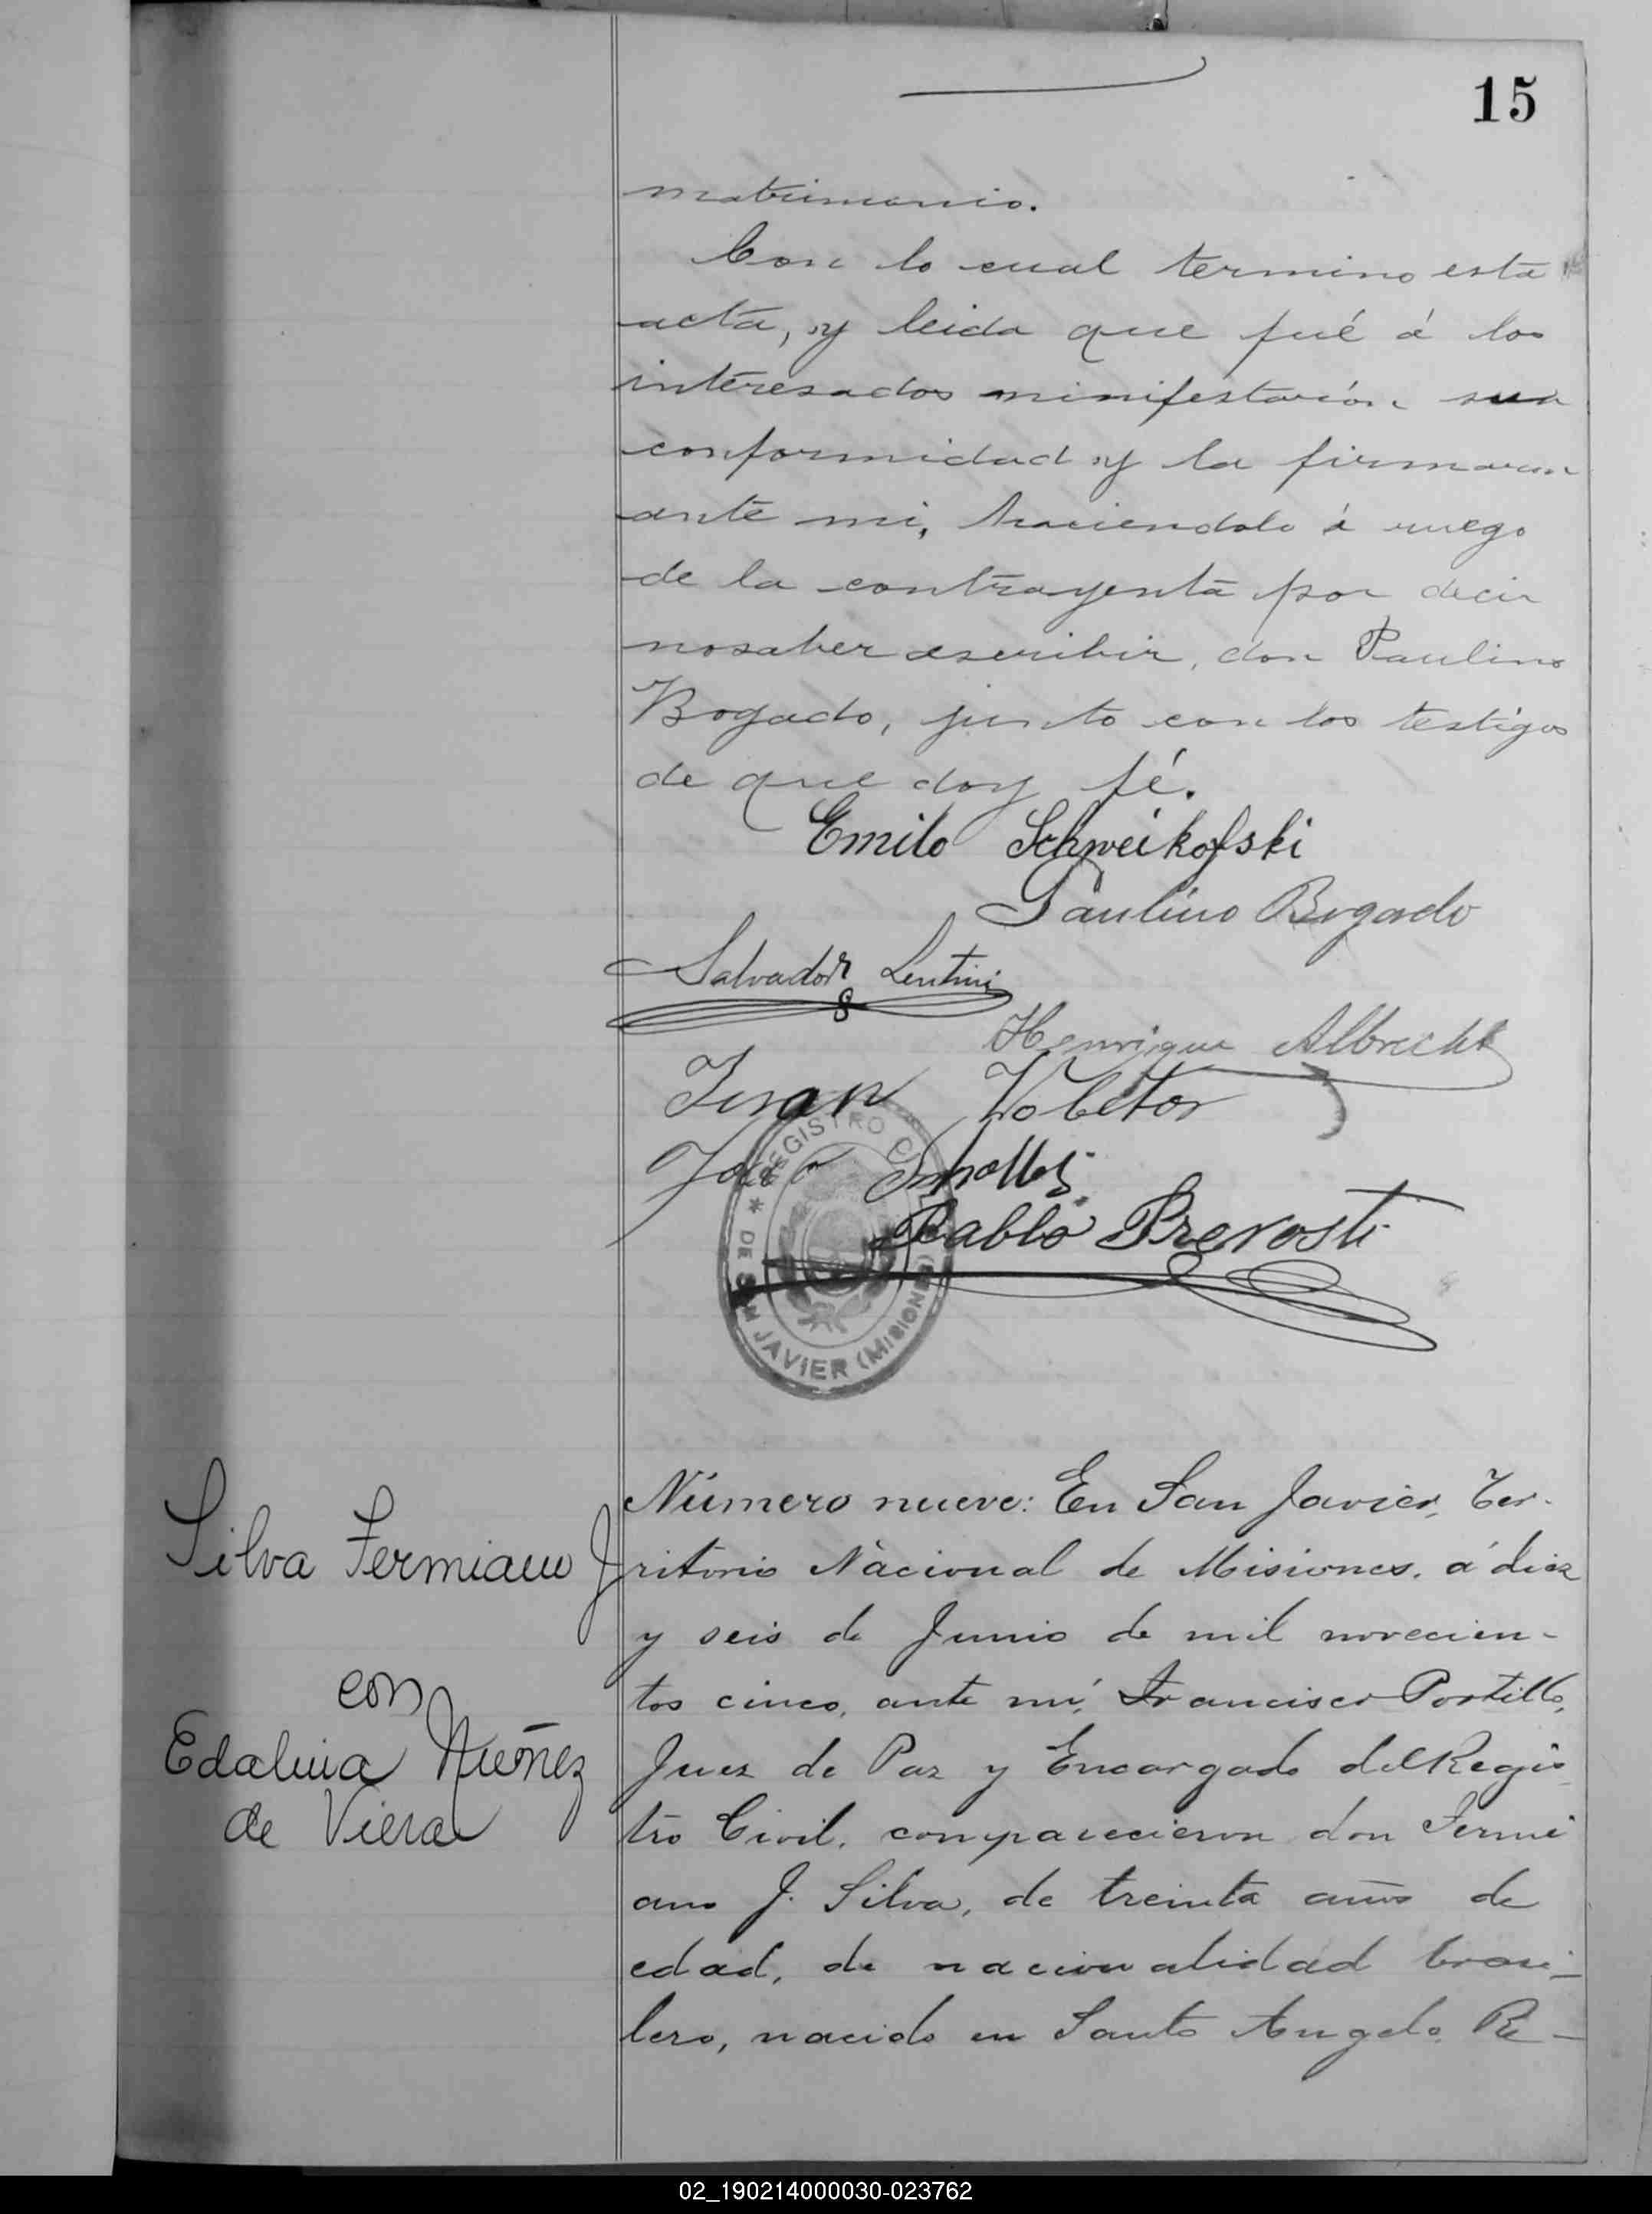 15
matrimonio.
Con lo cual termino esta
acta, y leida que fué á los
interesados minifestarón su
conformidad y la firmaron
ante mi, haciendolo á ruego
de la contrayenta por decir
no saber escribir, don Paulino
Bogado, junto con los testigos
de que doy fé.
Emilo Schweikofski
Paulino Bogado
Salvador Lentini
Henrique Albrecht
Juan
Pablo Prevosti
REGISTRO CIVIL
* DE SAN JAVIER (MISIONES)
Silva Fermiano J
con
Edaluia Nuñez
de Viera
Número nueve: En San Javier, Ter-
ritorio Nacional de Misiones, á diez
y seis de Junio de mil novecien-
tos cinco, ante mí, Francisco Portillo,
Juez de Paz y Encargado del Regis
tro Civil, comparecieron don Fermi
ano J. Silva, de treinta años de
edad, de nacionalidad brasi-
lero, nacido en Santo Angelo, Re-
02_190214000030-023762